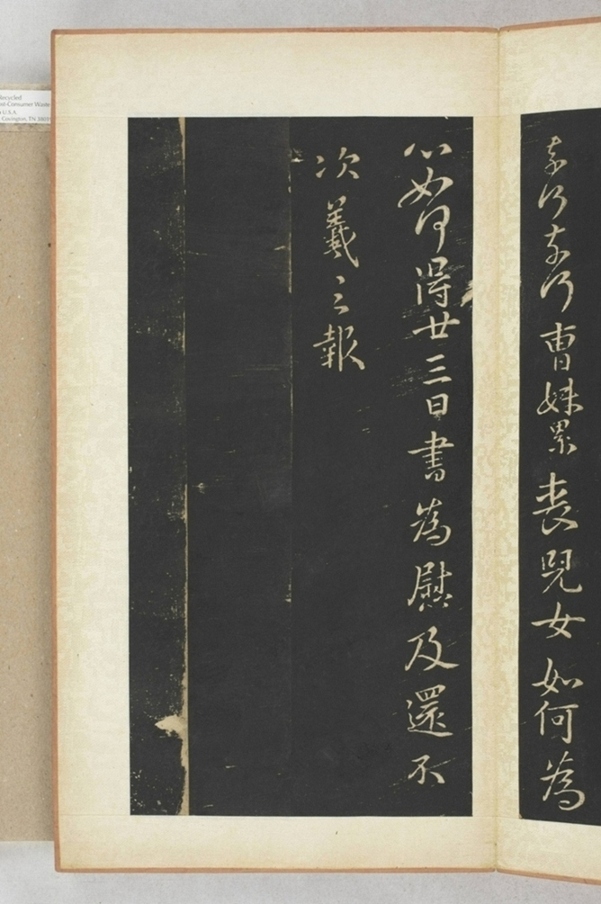 奈何奈何曹妹累喪兒女如何為
心如何得廿三日書為慰及還不
次羲之報
Recycled
Consumer Waste
U.S.A.
Covington, TN